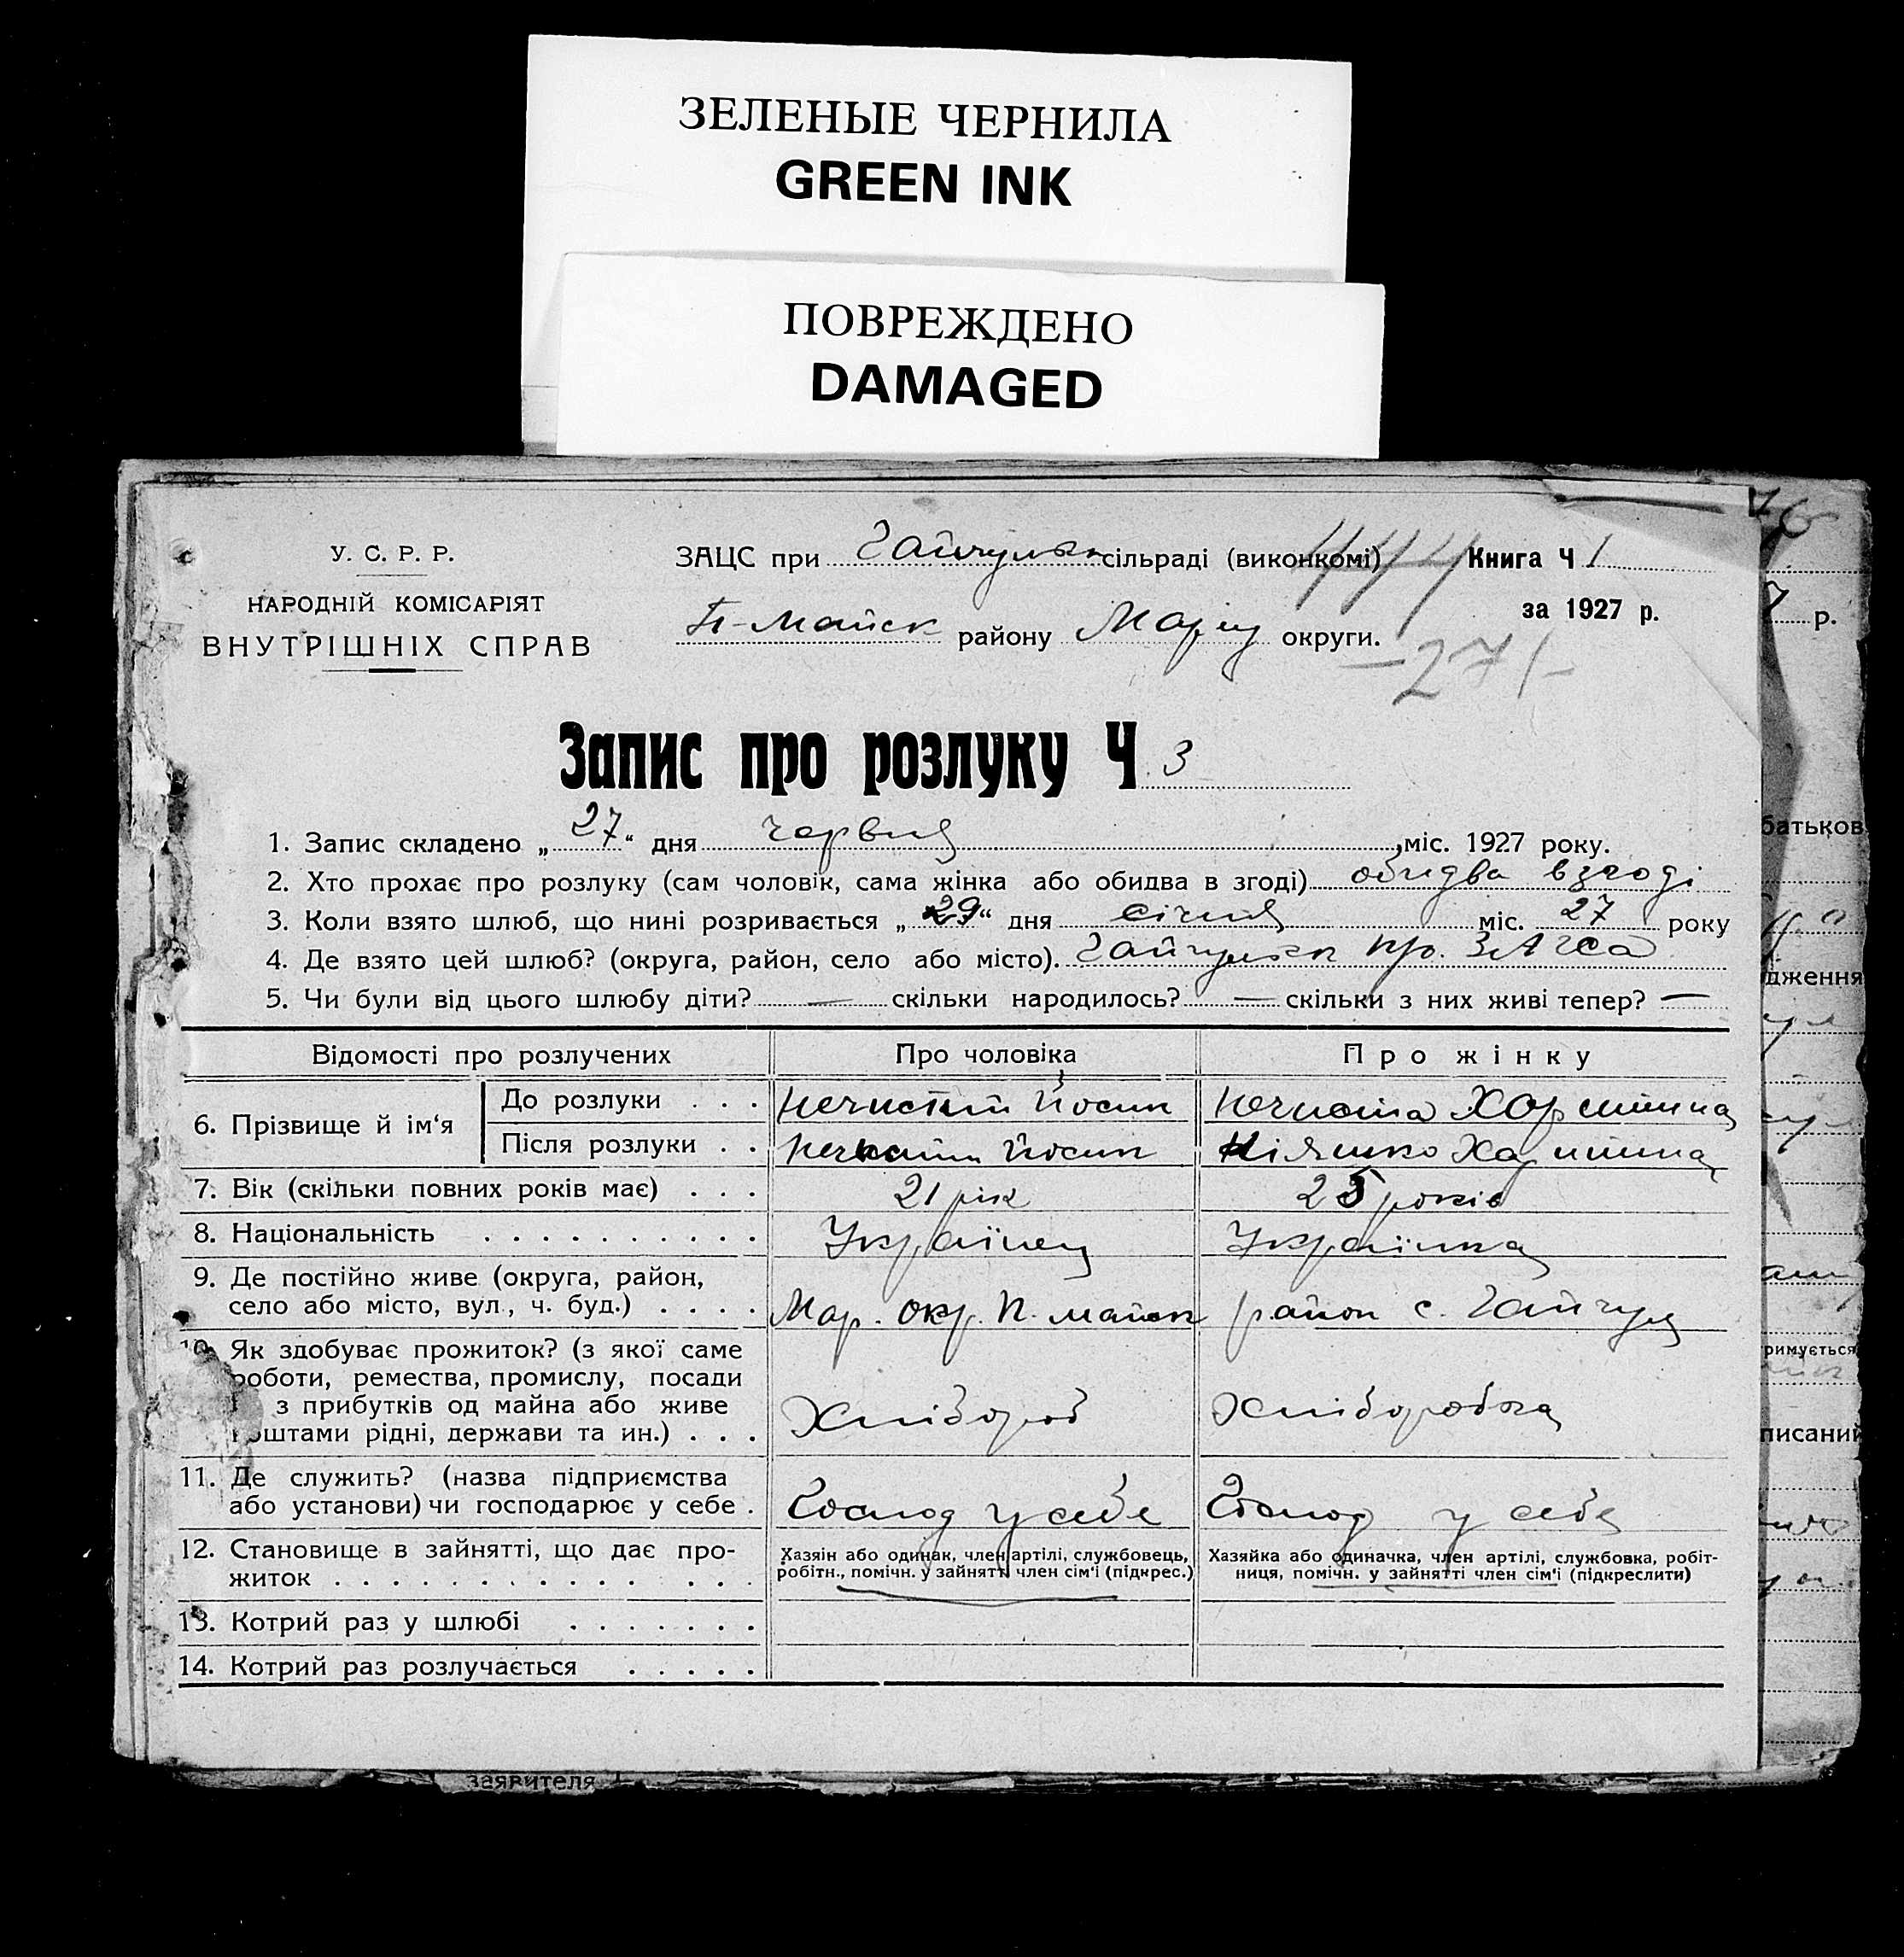 ЗЕЛЕНЫЕ ЧЕРНИЛА
GREEN INK
ПОВРЕЖДЕНО
DAMAGED
У. С. Р. Р.
НАРОДНІЙ КОМІСАРІЯТ
ВНУТРІШНІХ СПРАВ
ЗАЦС при Гайчульск сільраді (виконкомі)
Книга Ч 1
П-Майск району Маріу округи.
за 1927 р.
-27/-
р.
Запис про розлуку Ч. 3
1. Запис складено „27“ дня червня міс. 1927 року.
2. Хто прохає про розлуку (сам чоловік, сама жінка або обидва в згоді) обидва в згоді
3. Коли взято шлюб, що нині розривається „29“ дня січня міс. 27 року
4. Де взято цей шлюб? (округа, район, село або місто). Гайчульск пр. ЗАГСа
5. Чи були від цього шлюбу діти? — скільки народилось? — скільки з них живі тепер? —
Відомості про розлучених Про чоловіка Про жінку
6. Прізвище й ім‘я
До розлуки . . . Нечистий Йосип Нечиста Харитина
Після розлуки . . Нечистий Йосип Кіяшко Харитина
7. Вік (скільки повних років має) . . . 21 рік 25 років
8. Національність . . . . . . . . . . . Українец Українка
9. Де постійно живе (округа, район,
село або місто, вул., ч. буд.) . . . . Мар. окр. П. майск район с. Гайчул
10. Як здобуває прожиток? (з якої саме
роботи, ремества, промислу, посади
з прибутків од майна або живе
коштами рідні, держави та ин.) . . . Хлібороб Хліборобка
11. Де служить? (назва підприємства
або установи) чи господарює у себе . Господ у себе Господ у себе
12. Становище в зайнятті, що дає про-
житок . . . . . . . . . . . . . .
Хазяін або одинак, член артілі, службовець,
робітн., помічн. у зайнятті член сім‘і (підкрес.)
Хазяйка або одиначка, член артілі, службовка, робіт-
ниця, помічн. у зайнятті член сім‘і (підкреслити)
13. Котрий раз у шлюбі . . . . . . .
14. Котрий раз розлучається . . . . .
батьков
дження
римується
писаний
заявителя